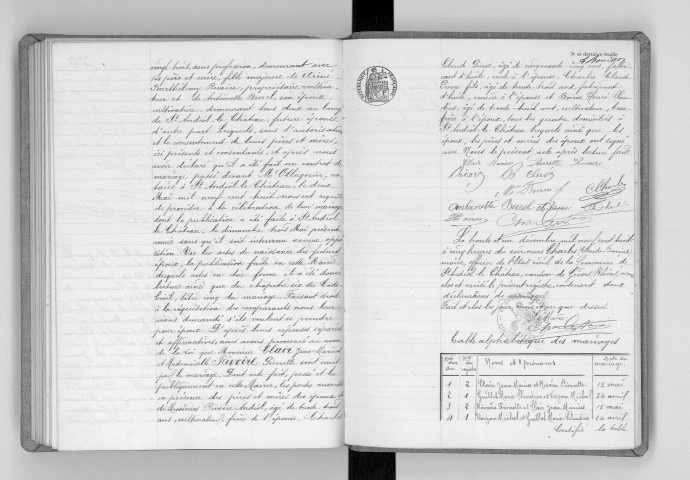 vingt trois, sans profession, demeurant avec
ses père et mère, fille majeure de
Barthélemy Rivoire, propriétaire cultiva-
teur et de Antoinette Burel, son épouse,
cultivatrice, demeurant tous deux au bourg
de St Andéol le Château, future épouse
d'autre part. Lesquels, sous l'autorisation
et le consentement de leurs pères et mères,
ici présents et consentants et après nous
avoir déclaré qu'il a été fait un contrat de
mariage, passé devant Me no-
taire à St Andéol le Château, le deux
Mai mil neuf cent huit, nous ont requis
de procéder à la célébration de leur mariage
dont la publication a été faite à St Andéol
le Château, le dimanche trois Mai présente
année sans qu'il soit intervenu aucune oppo-
sition. Vu les actes de naissance des futurs
époux, la publication faite en cette Mairie,
desquels actes en due forme et a été donné
lecture ainsi que du chapitre six du Code
Civil, titre cinq du mariage. Faisant droit
à la réquisition des comparants nous leur
avons demandé s'ils veulent se prendre
pour époux. D'après leurs réponses séparées
et affirmatives, nous avons prononcé au nom
de la loi que Monsieur Clair Jean Marius
et Mademoiselle Rivoire Pierrette sont unis
par le mariage. Dont acte fait, passé et lu
publiquement en cette Mairie, les portes ouvertes
en présence des pères et mères des époux et
de Messieurs Rivoire Andéol, âgé de trente trois
ans, cultivateur, frère de l'épouse, Charles
3e et dernière feuille
Claude Pierre, âgé de cinquante
d'huile, oncle à l'épouse, Charles Claude
Pierre fils, âgé de trente trois ans, fabricant
d'huile, cousin à l'épouse et Bonin Pierre Clau-
dius, âgé de trente huit ans, cultivateur, beau
frère à l'époux, tous les quatre domiciliés à
St Andéol le Château lesquels ainsi que les
époux, les pères et mères des époux ont signé
avec Nous le présent acte après lecture faite
Clair Marius Pierrette Rivoire
Antoinette Burel
Le trente et un décembre mil neuf cent huit
à cinq heures du soir nous Charles Claude
maire, officier de l'état civil de la Commune de
St Andéol le Château, canton de Givors (Rhône) avons
clos et arrêté le présent registre, contenant deux
déclarations de mariage.
Fait et clos les jour, mois et an que dessus.
Le Maire
Table alphabétique des mariages
Noms et Prénoms
1 2 Clair Jean Marius et Rivoire Pierrette 15 mai
2 1 24 avril
3 2 Rivoire Pierrette et Clair Jean Marius 15 mai
4 1 24 avril
Certifié la table